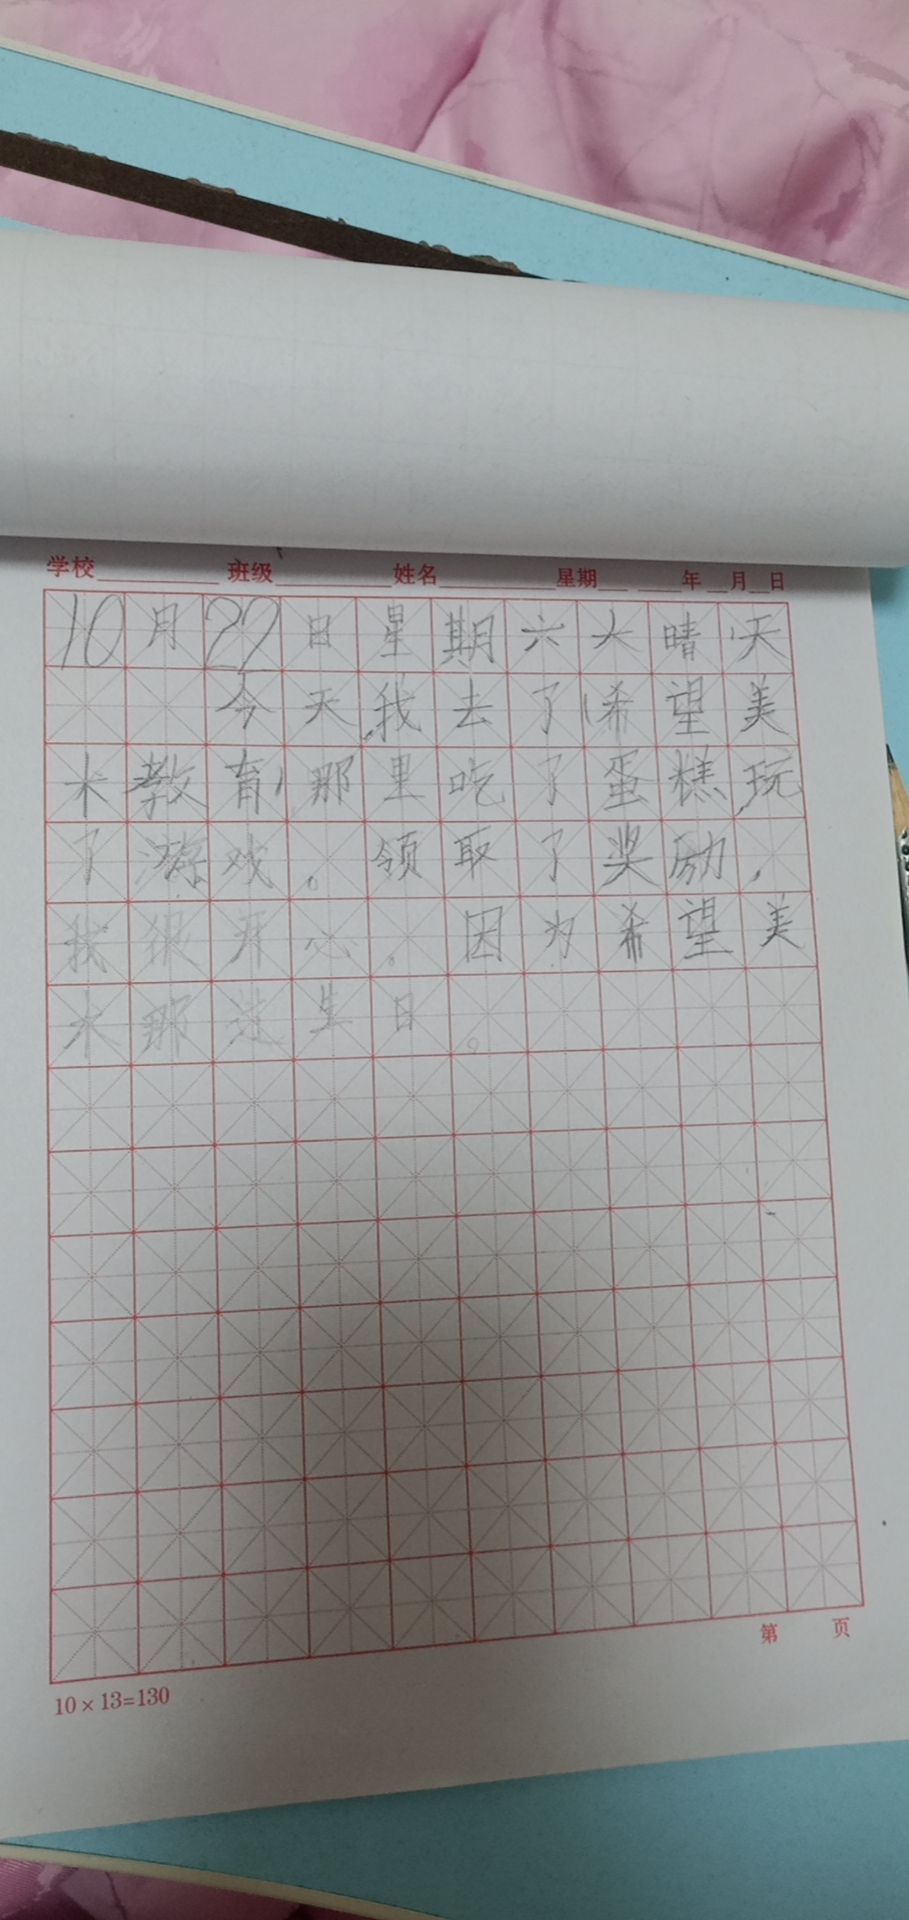 学校 班级 姓名 星期 年 月 日
10月27日星期六大晴天
今天我去了希望美
木教育，那里吃了蛋糕，玩
了游戏。领取了奖励，
我很开心。因为希望美
木那过生日。
第 页
10×13=130